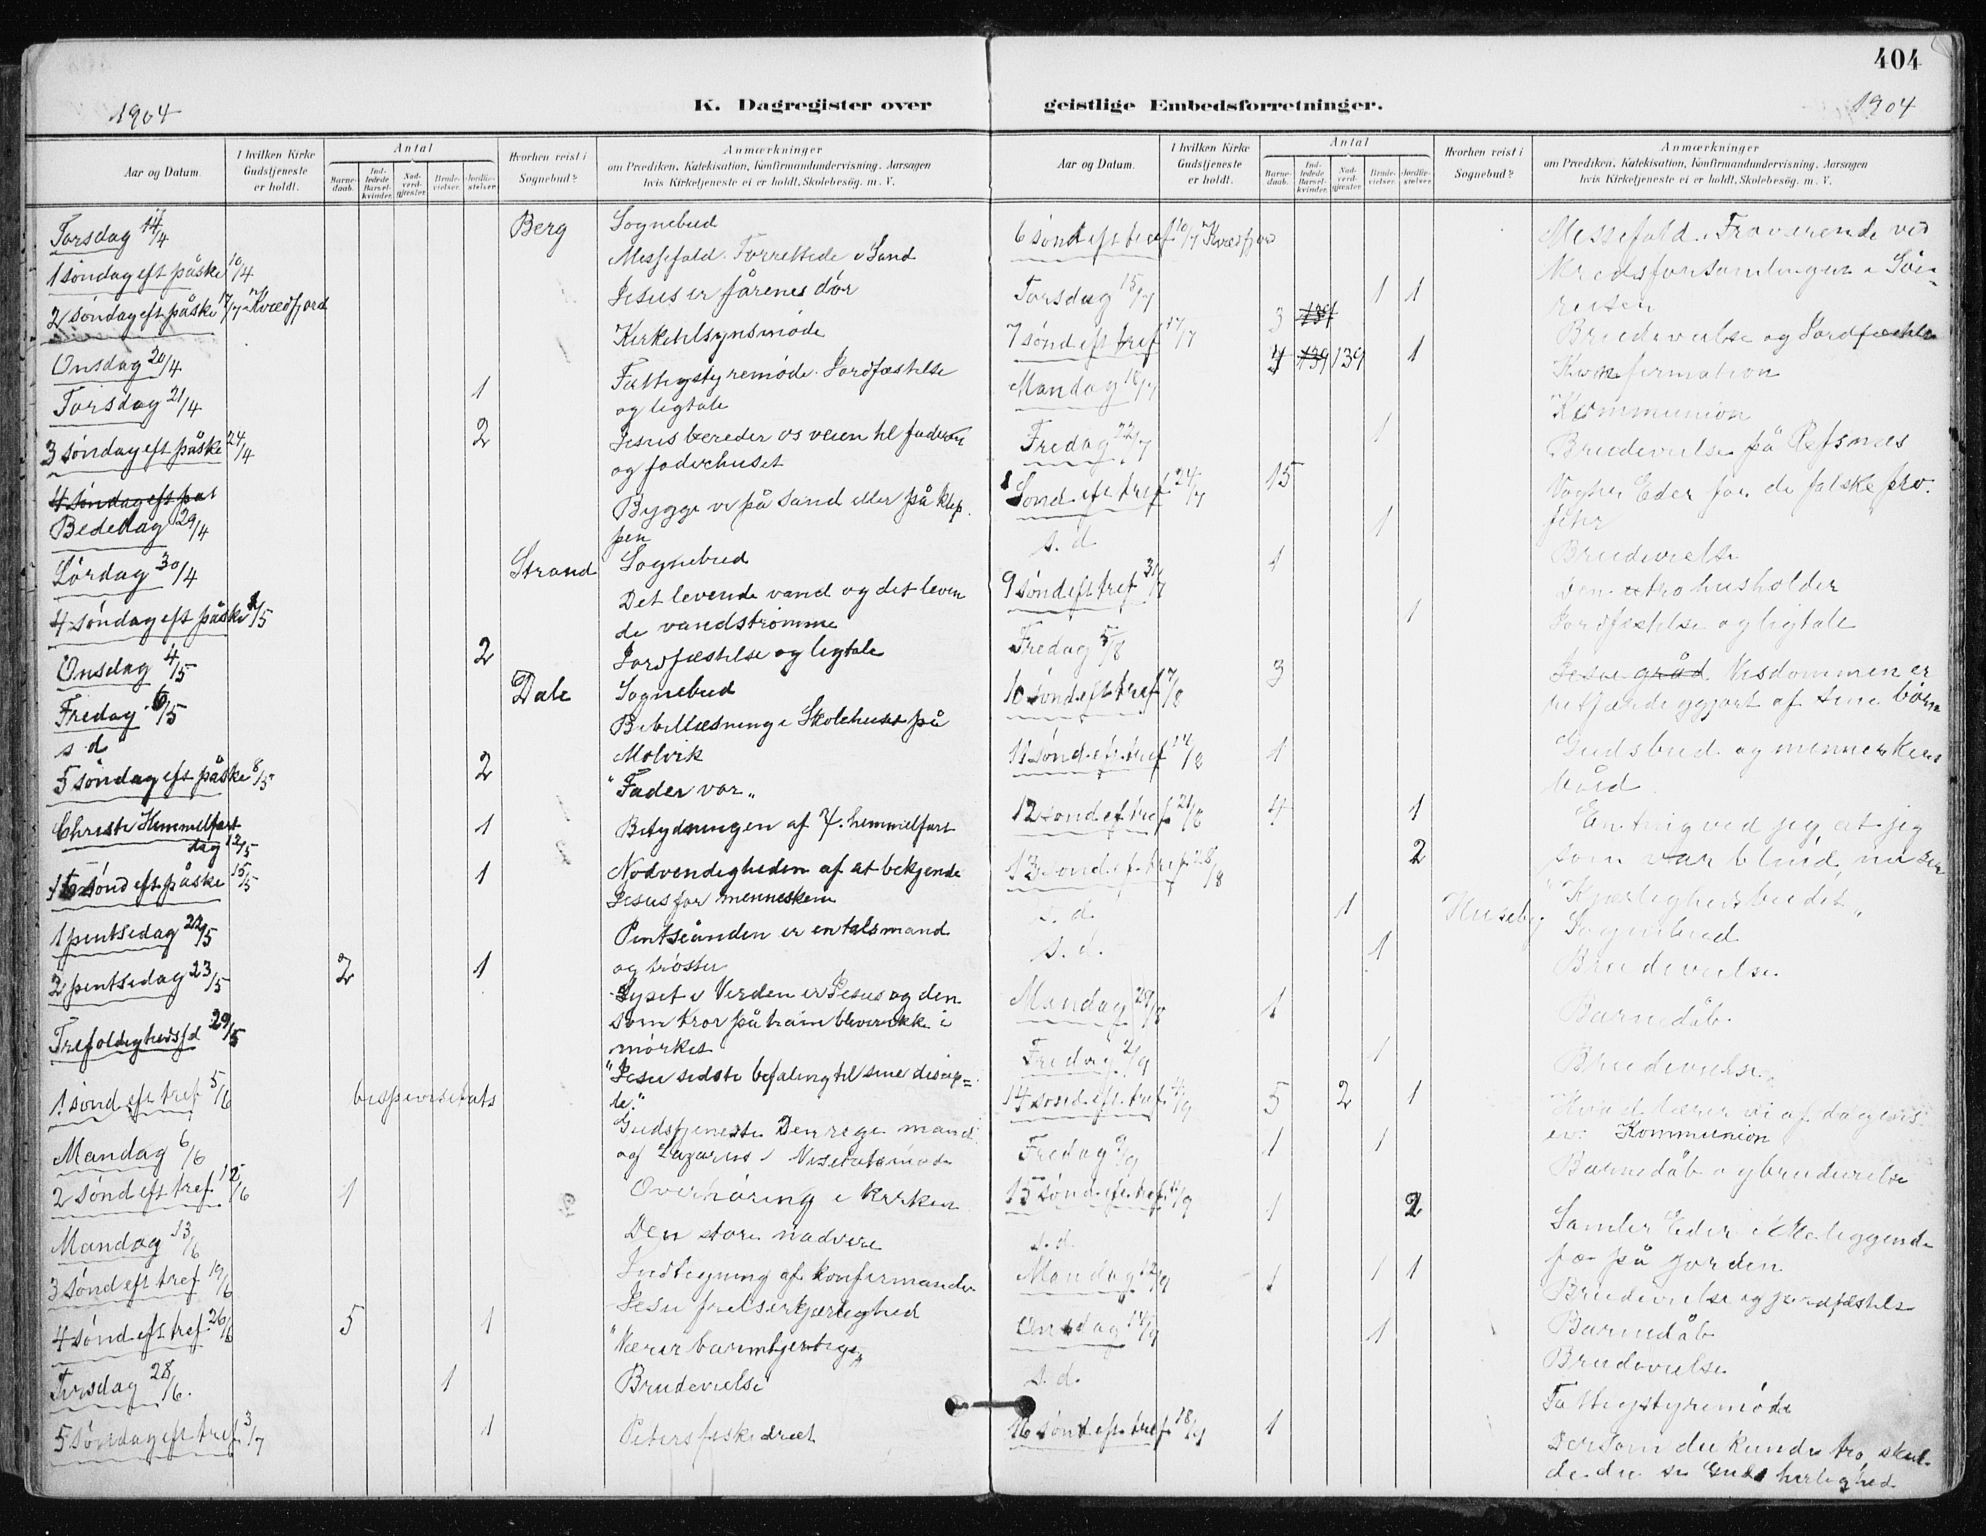 404
1904
K. Dagregister over
geistlige Embedsforretninger.
1904
Aar og Datum.
I hvilken Kirke Gudstjeneste er holdt.
Antal
Barnedaab.
Indledede Barselkvinder.
Nadverdgjester.
Brudevielser.
Jordfæstelser.
Hvorhen reist i Sognebud?
Anmærkninger
om Prædiken, Katekisation, Konfirmandundervisning, Aarsagen
hvis Kirketjeneste ei er holdt, Skolebesøg, m. V.
Torsdag 14/4 Berg Sognebud
1 søndag eft påske 10/4 Messefald. Forrettede i Sand
2 søndag eft påske 17/7 Kvædfjord Jesus er fårenes dør
Onsdag 20/4 Kirketilsynsmøde
Torsdag 21/4 1 Fattigstyremøde. Jordfæstelse
og ligtale
3 søndag eft påske 24/4 2 Jesus bereder os veien til faderen
og faderhuset
4 søndag eft pås
Bededag 29/4 Bygge vi på sand eller på klep
pen
Lørdag 30/4 Strand Sognebud
4 søndag eft påske 1/5 Det levende vand og det leven
de vandstrømme
Onsdag 4/5 2 Jordfæstelse og ligtale
Fredag 6/5 Dale Sognebud
s. d. Bibellæsning i Skolehuset på
Molvik
5 søndag eft påske 8/5 2 "Fader vor"
Christi Himmelfart
dag 12/5 1 Betydningen af J. himmelfart
6 sønd eft påske 15/5 1 Nødvendigheden af at bekjende
Jesus for menneskene
1 pintsedag 22/5 Pintseånden er en talsmand
og trøster
2 pintsedag 23/5 2 1 Lyset i Verden er Jesus og den
som tror på ham bliver ikke i
mørket
Trefoldighedsfd 29/5 "Jesu sidste befaling til sine discip=
le."
1 sønd eft tref 5/6 bispevisitats Gudstjeneste Den rige mand
og Lazarus / Visitatsmøde
Mandag 6/6 Overhøring i kirken
2 sønd eft tref 12/6 1 Den store nadvere
Mandag 13/6 Indtegning af konfirmander
3 sønd eft tref 19/6 Jesu frelserkjærlighed
4 sønd eft tref 26/6 5 1 "Værer barmhjertige"
Tirsdag 28/6. 1 Brudevielse
5 søndag eft tref 3/7 1 Peters fiskedræt
Aar og Datum.
I hvilken Kirke Gudstjeneste er holdt.
Antal
Barnedaab.
Indledede Barselkvinder.
Nadverdgjester.
Brudevielser.
Jordfæstelser.
Hvorhen reist i Sognebud?
Anmærkninger
om Prædiken, Katekisation, Konfirmandundervisning, Aarsagen
hvis Kirketjeneste ei er holdt, Skolebesøg, m. V.
6 sønd eft tref 10/7 Kvædfjord Messefald. Fraværende ved
Kredsforsamlingen i Sør-
reisen
Torsdag 15/7 1 1 Brudevielse og Jordfæstelse
7 sønd eft tref 17/7 3 139 Konfirmation
Mandag 18/7 4 139 139 1 Kommunion
Fredag 22/7 1 Brudevielse på Refsnæs
8 Sønd eft tref 24/7 15 Vogter Eder for de falske pro
feter
s. d. 1 Brudevielse
9 sønd eft tref 31/7 1 Den utro husholder
Fredag 5/8 1 Jordfæstelse og ligtale
10 sønd eft tref 7/8 3 Jesu gråd Visdommen er
retfærdiggjort af sine børn
11 sønd eft tref 14/8 1 Guds bud og menneskers
båd
12 sønd eft tref 21/8 4 1 En ting ved jeg, at jeg
som var blind, nu ser
13 sønd eft tref 28/8 2 "Kjærlighedsbudet"
s. d. 1 Huseby Sognebud
s. d. 1 Brudevielse
Mandag 29/8 1 Barnedåb
Fredag 2/9 1 Brudevielse
14 sønd eft tref 4/9 5 2 1 Hvad lærer vi af
Kommunion
Fredag 9/9 1 1 Barnedåb og brudevielse
15 sønd eft tref 11/9 1 2 Samler Eder ikke liggende
fæ på jorden
s. d. Brudevielse og jordfæstelse
Mandag 12/9 1 1 1 Barnedåb
Onsdag 14/9 1 Brudevielse
s. d. Fattigstyremøde
16 sønd eft tref 18/9 1 Dersom du kunde tro, skul
de du se Guds herlighed